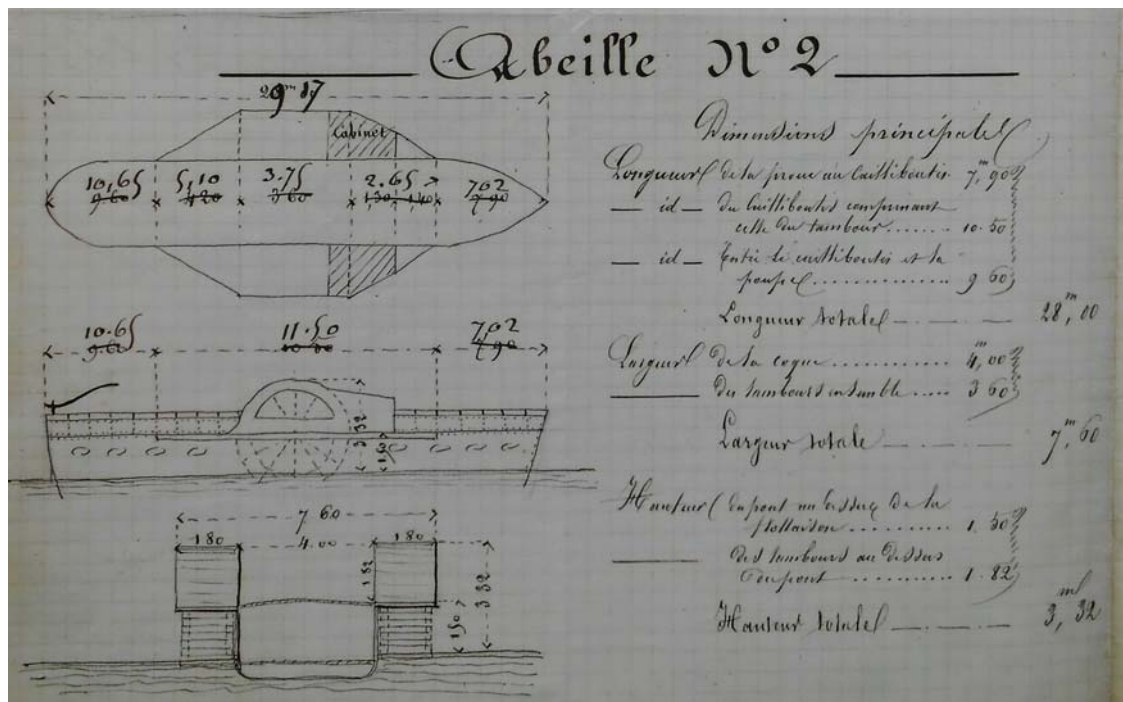 Abeille N° 2
29m 17
Cabinet
10,65 5,10 3.75 2.65 7,02
9.60 4.20 3 60 1,30 1,40 7 90
10.65 11.50 7,02
9.60 7 90
3 32
1 50
7 60
1 80 4.00 1 80
1 82
3 32
1 50
Dimensions principales
Longueur de la proue au 7,m 90
— id — du comprenant
celle du tambour ....... 10.50
— id — Entre le et la
poupe .............. 9 60
Longueur totale — 28,m 00
Largeur de la coque ........... 4,m 00
— des tambours ensemble ..... 3 60
Largeur totale — 7,m 60
Hauteur du pont au dessus de la
flottaison .......... 1. 50
— des tambours au dessus
du pont .......... 1. 82
Hauteur totale — 3,m 32